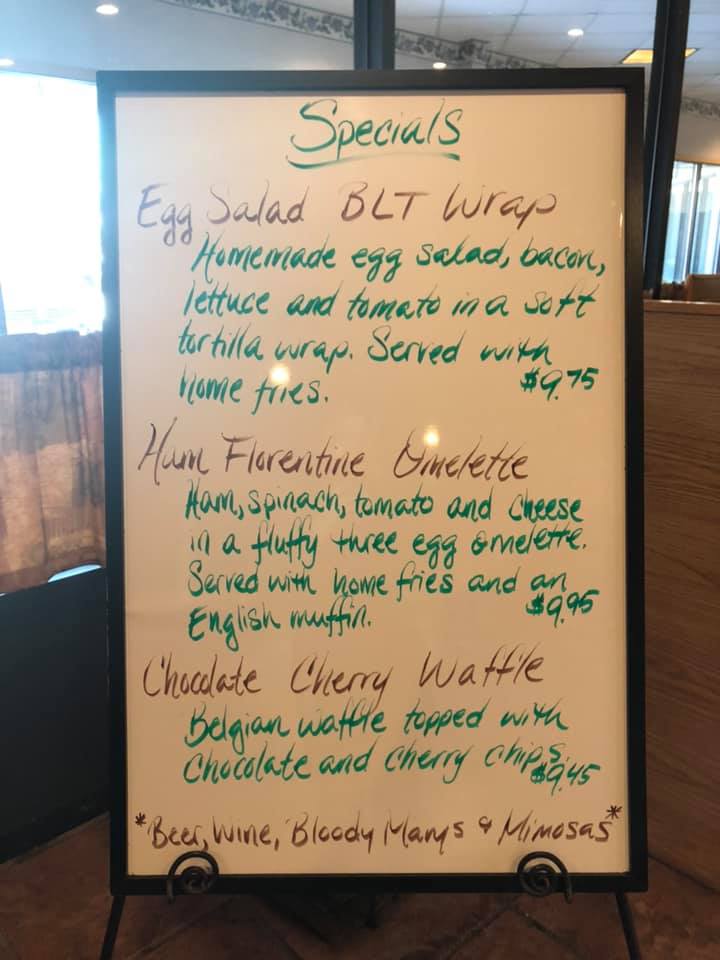 Specials
Egg Salad BLT Wrap
Homemade egg salad, bacon,
lettuce and tomato in a soft
tortilla wrap. Served with
home fries. $9.75
Ham Florentine Omelette
Ham, spinach, tomato and cheese
in a fluffy three egg omelette.
Served with home fries and an
English muffin. $9.95
Chocolate Cherry Waffle
Belgian waffle topped with
Chocolate and cherry chips. $9.45
*Beer, Wine, Bloody Marys & Mimosas*